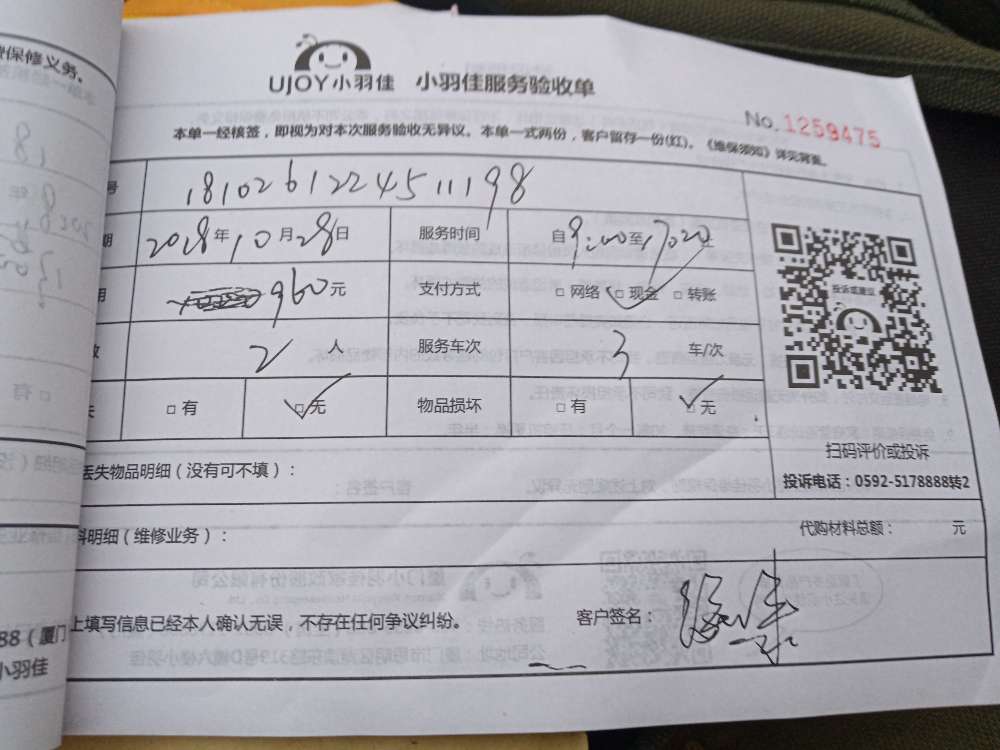 保修义务。
UJOY小羽佳 小羽佳服务验收单
No. 1259475
本单一经核签，即视为对本次服务验收无异议。本单一式两份，客户留存一份(红)。《维保须知》详见背面。
号 181026122451198
期 2018年10月28日 服务时间 自9:00至17:02止
960元 支付方式 □网络 □现金 □转账
投诉或建议
2人 服务车次 3车/次
□有 □无 物品损坏 □有 □无
扫码评价或投诉
丢失物品明细（没有可不填）：
投诉电话：0592-5178888转2
料明细（维修业务）： 代购材料总额： 元
上填写信息已经本人确认无误，不存在任何争议纠纷。 客户签名：
88（厦门
小羽佳